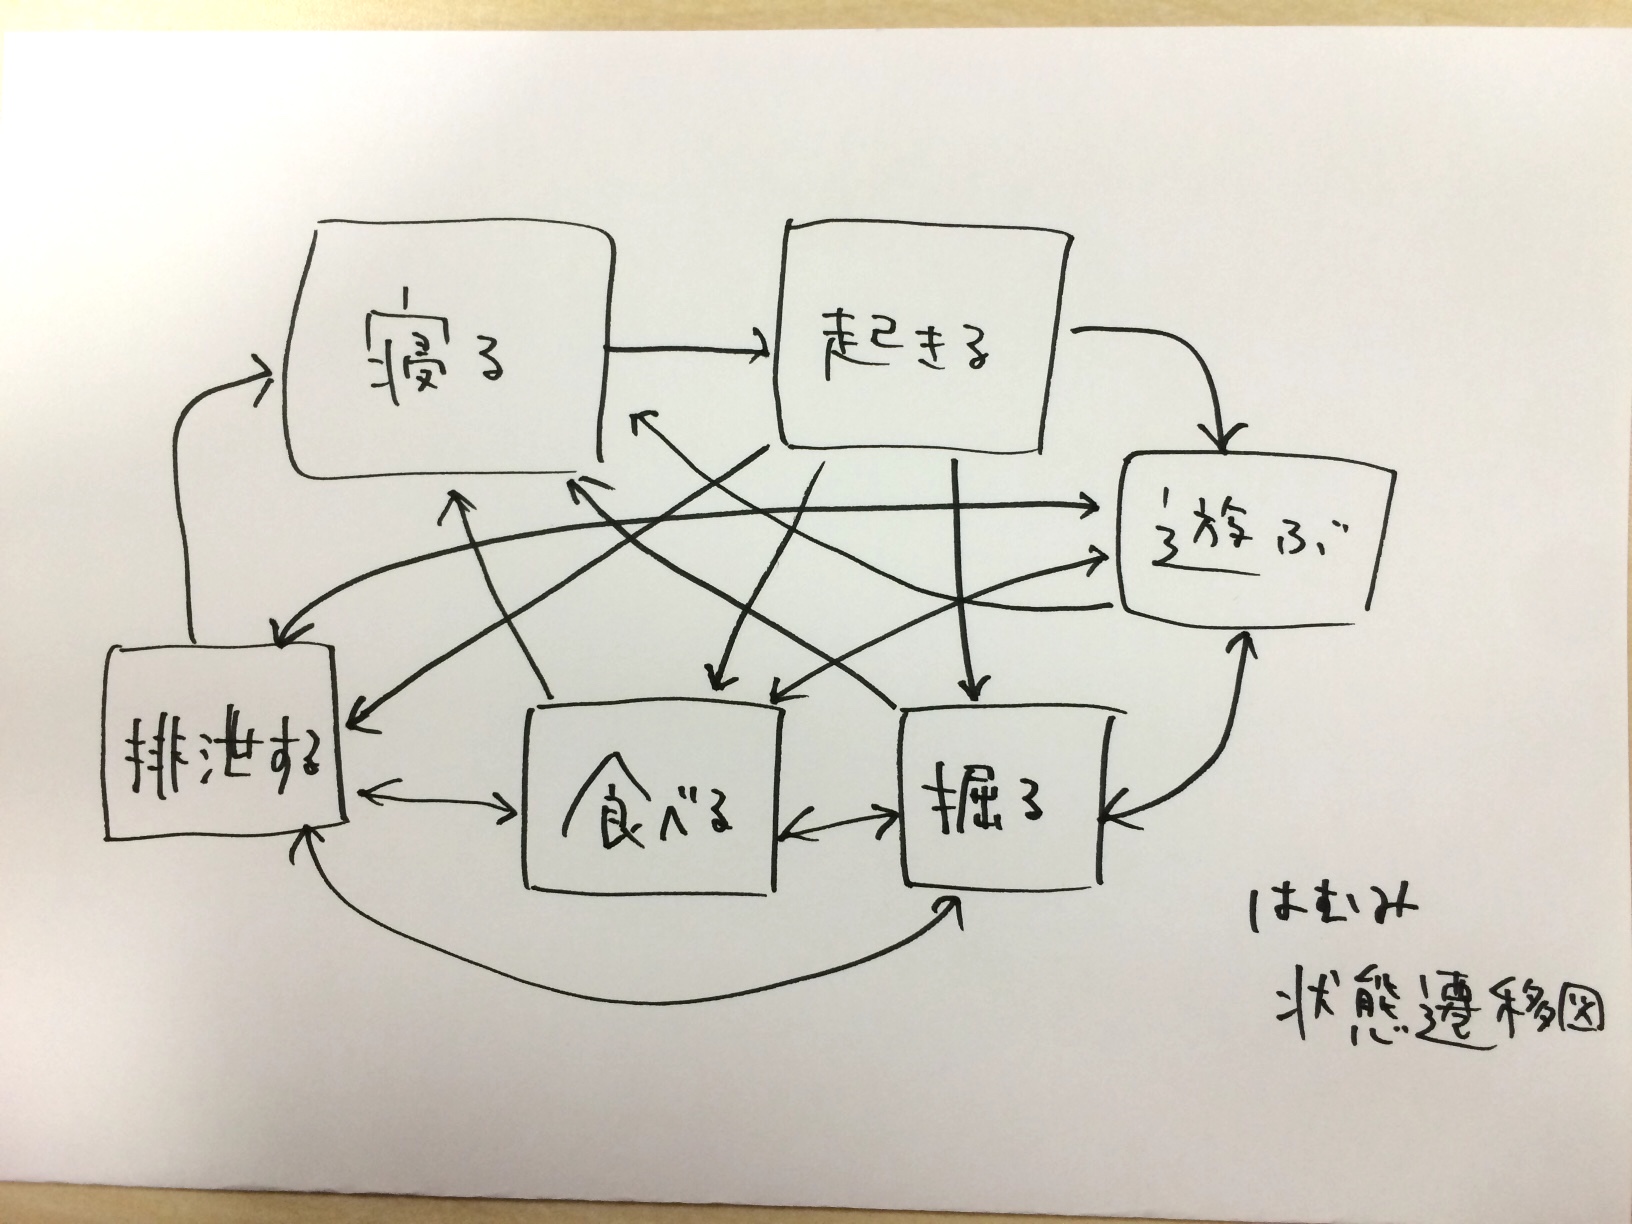 寝る
起きる
遊ぶ
排泄する
食べる
掘る
はむいみ
状態遷移図